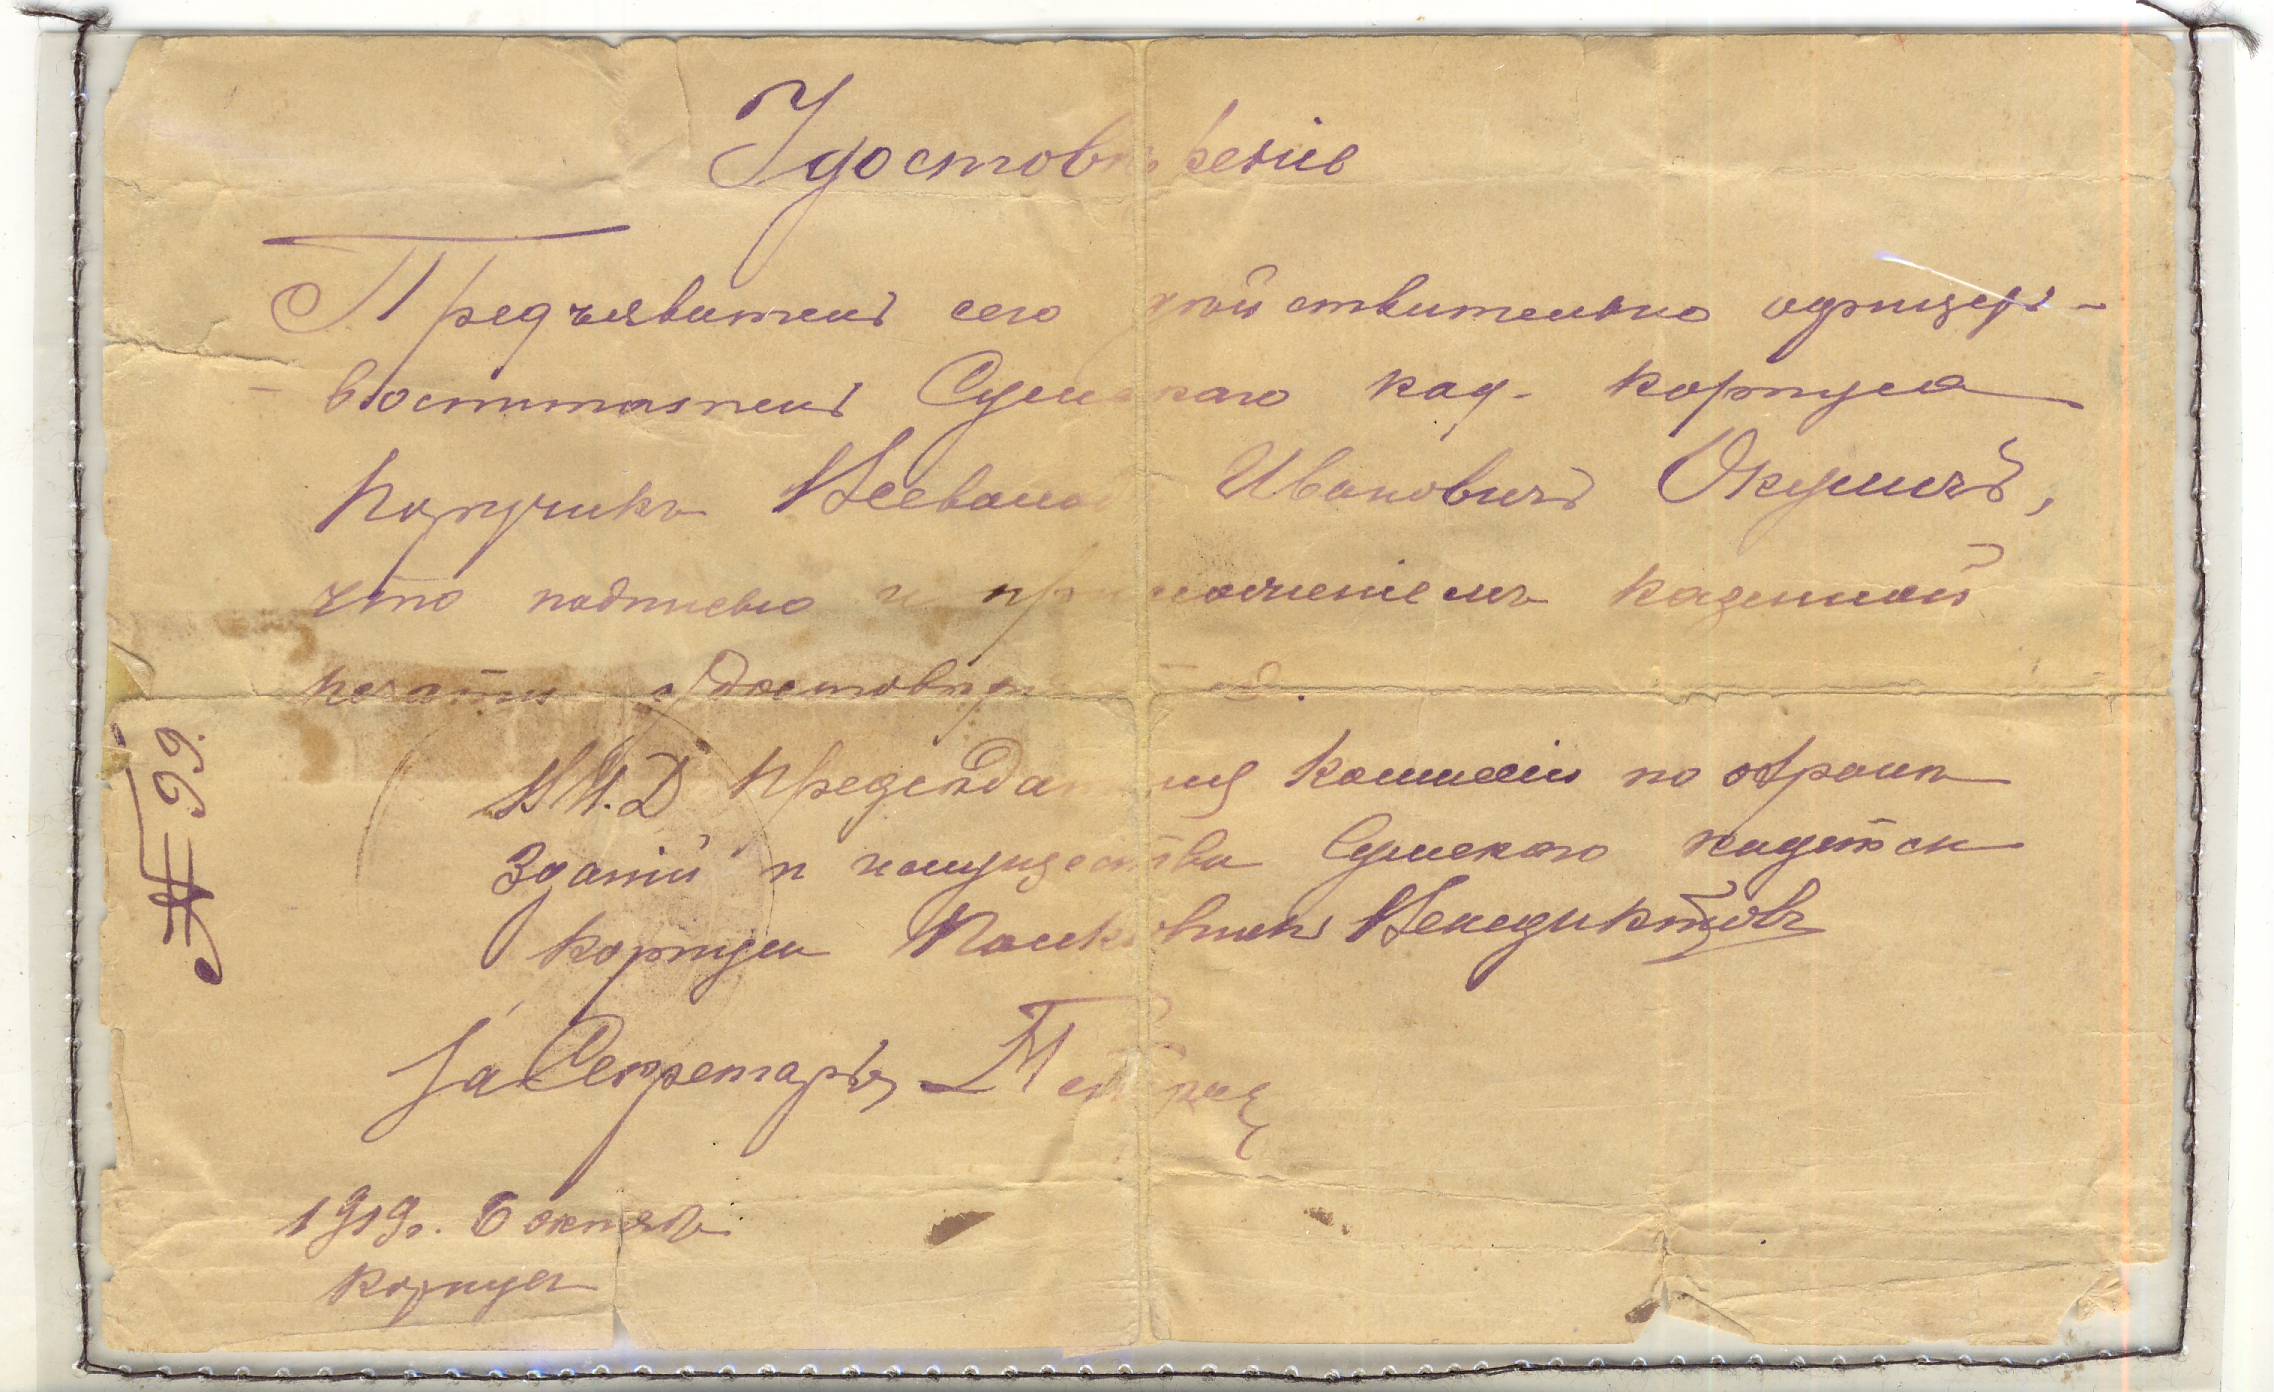 Удостовѣреніе
Предъявитель сего дѣйствительно офицеръ-
-воспитатель Сумскаго кад. корпуса
Поручикъ Всеволод Ивановичъ Окушичъ,
что подписью и приложеніемъ казенной
печати удостовѣр
И.Д Предсѣдателя Комиссіи по охранѣ
Зданій и имущества Сумскаго кадетск
корпуса Полковникъ Венедиктовъ
За Секретаря
1919г. 6 октяб.
Корпусъ
№ 99.